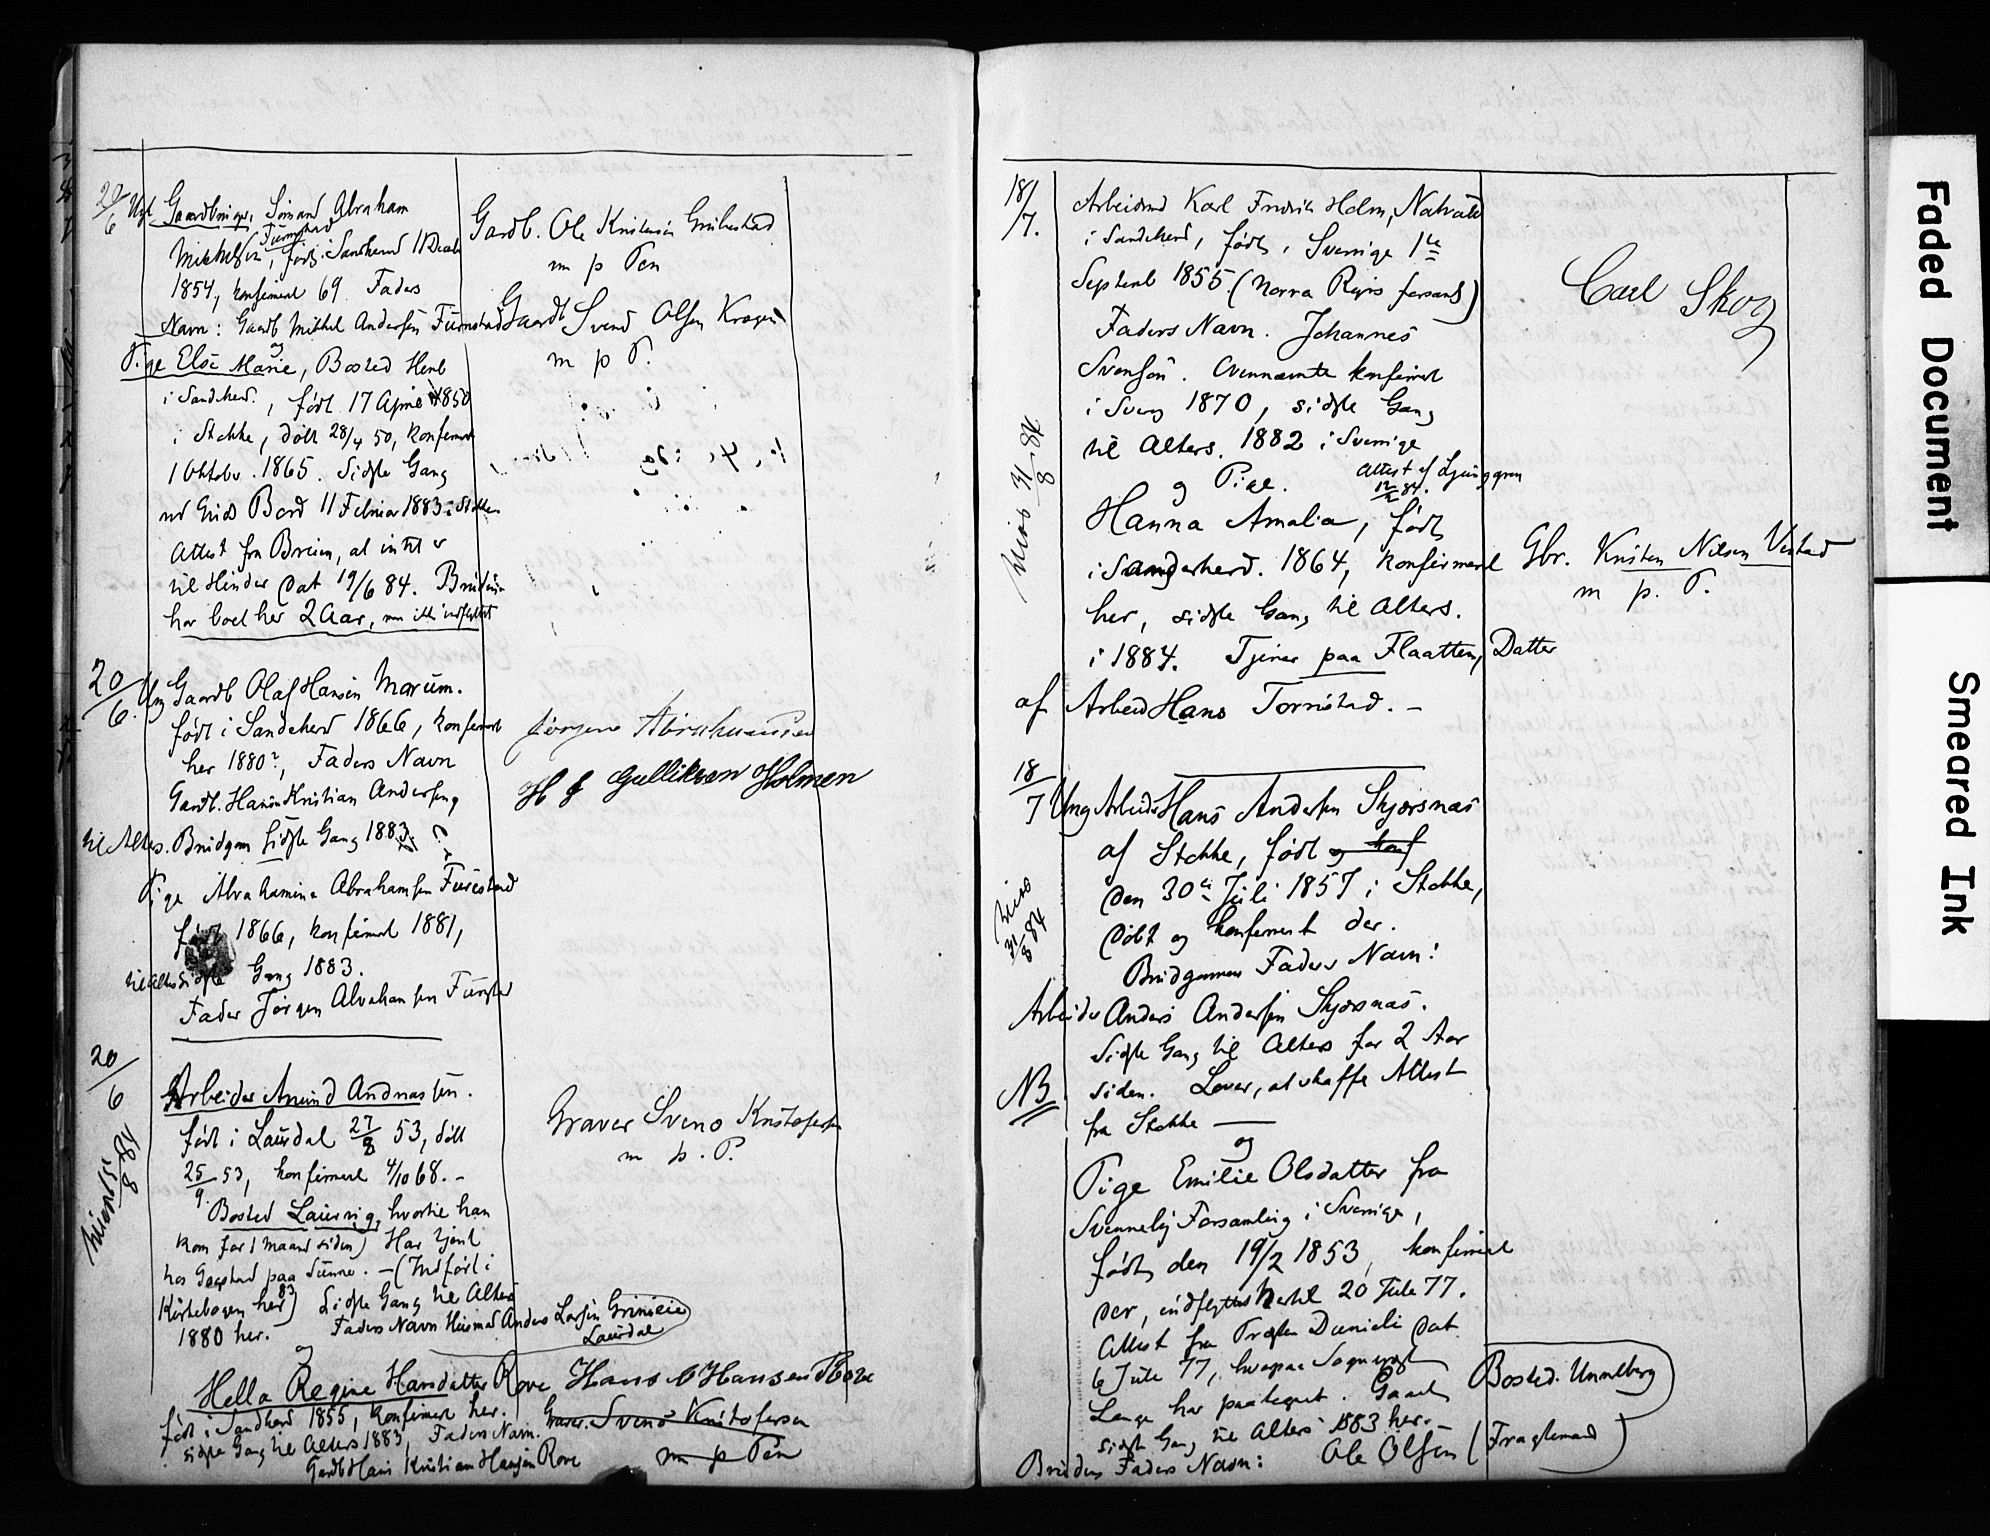 20/6
Gaardbruger, Simand Abraham
Mikkelsen, født i Sandeherd 11 Decbr
Furustad
1854, konfirmert 69. Faders
Navn: Gaardb Mikkel Andersen Furustad
og
Pige Else Marie, Bosted Henb
i Sandeherd, født 17 April 1850
i Stokke, døbt 28/4 50, konfirmert
1 Oktober 1865. Sidste Gang
ved Guds Bord 11 Februar 1883 i Stokke
Attest fra Breien, at intet er
til Hinder dat 19/6 84. Bruden
har boet her 2 Aar, men ikke indflyttet
Gaardb. Ole Kristensen
m p Pen
Gaardb Svend Olsen Kragen
m p P.
20/6. Ung Gaardb Olaf Hansen Marum.
født i Sandeherd 1866, konfirmert
her 1880?, Faders Navn
Gaardb. Hans Kristian Andersen,
til Alters. Brudgom sidste Gang 1883.
Pige Abrahamine Abrahamsen Furustad
født 1866, konfirmert 1881,
til Alters sidste Gang 1883.
Fader Jørgen Abrahamsen Furustad
Jørgen Abrahamsen
H J Gulliksen Holmen
20/6
Arbeider Amund Andreassen.
født i Laurdal 27/8 53, døbt
25/9 53, konfirmert 4/10 68. -
Bosted Laurvig, hvortil han
kom for 1 Maaned siden) Har tjent
hos Gogstad paa Sunne. - (Indført i
Kirkebogen her 83) Sidste Gang til Alters
1880 her. Faders Navn Husmand Anders Larsen
Laurdal
og
Hella Regine Hansdatter Rove
født i Sandeherd 1855, konfirmert her.
sidste Gang til Alters 1883, Faders Navn.
Gaardb Hans Kristian Hansen Rove
Graver Svend Kristofersen
m p. P.
Hans O Hansen Rove
Graver. Svend Kristofersen
m p Pen
18/7.
Arbeidsmd Karl Fredrik Holm,
i Sandeherd, født i Sverige 1ste
Septembr 1855. (Norra Ryrs forsaml)
Faders Navn. Johannes
Svensen. Ovennævnte konfirmert
i Sverig 1870, sidste Gang
til Alters. 1882 i Sverige
Attest af Ljunggren
12/2 84.
og Pige.
Hanna Amalia, født
i Sandeherd. 1864, konfirmert
her, sidste Gang til Alters.
i 1884. Tjener paa Flaatten, Datter
af Arbeid Hans Tornstad. -
Viet 31/8 84
Carl Skog
Gbr. Kristen Nilsen Vestad
m p. P.
18/7 Ung Arbeider Hans Andersen Skjærsnæs
af Stokke, født og konf
den 30te Juli 1857 i Stokke,
døbt og konfirmert der.
Brudgommens Faders Navn:
Arbeider Anders Andersen Skjærsnæs.
Sidste Gang til Alters for 2 Aar
NB siden. Lover, at skaffe Attest
fra Stokke
og
Pige Emilie Olsdatter fra
Svenneby Forsamling i Sverige,
født den 19/2 1853, konfirmert
der, indflyttet hertil 20 Jule 77.
Attest fra Præsten Danieli dat
6 Jule 77, hvorpaa Sogneprest
Lange har paategnet. Gaaet
sidste Gang til Alters 1883 her.
Brudens Faders Navn: Ole Olsen
31/8 84
Bosted. Unnelberg